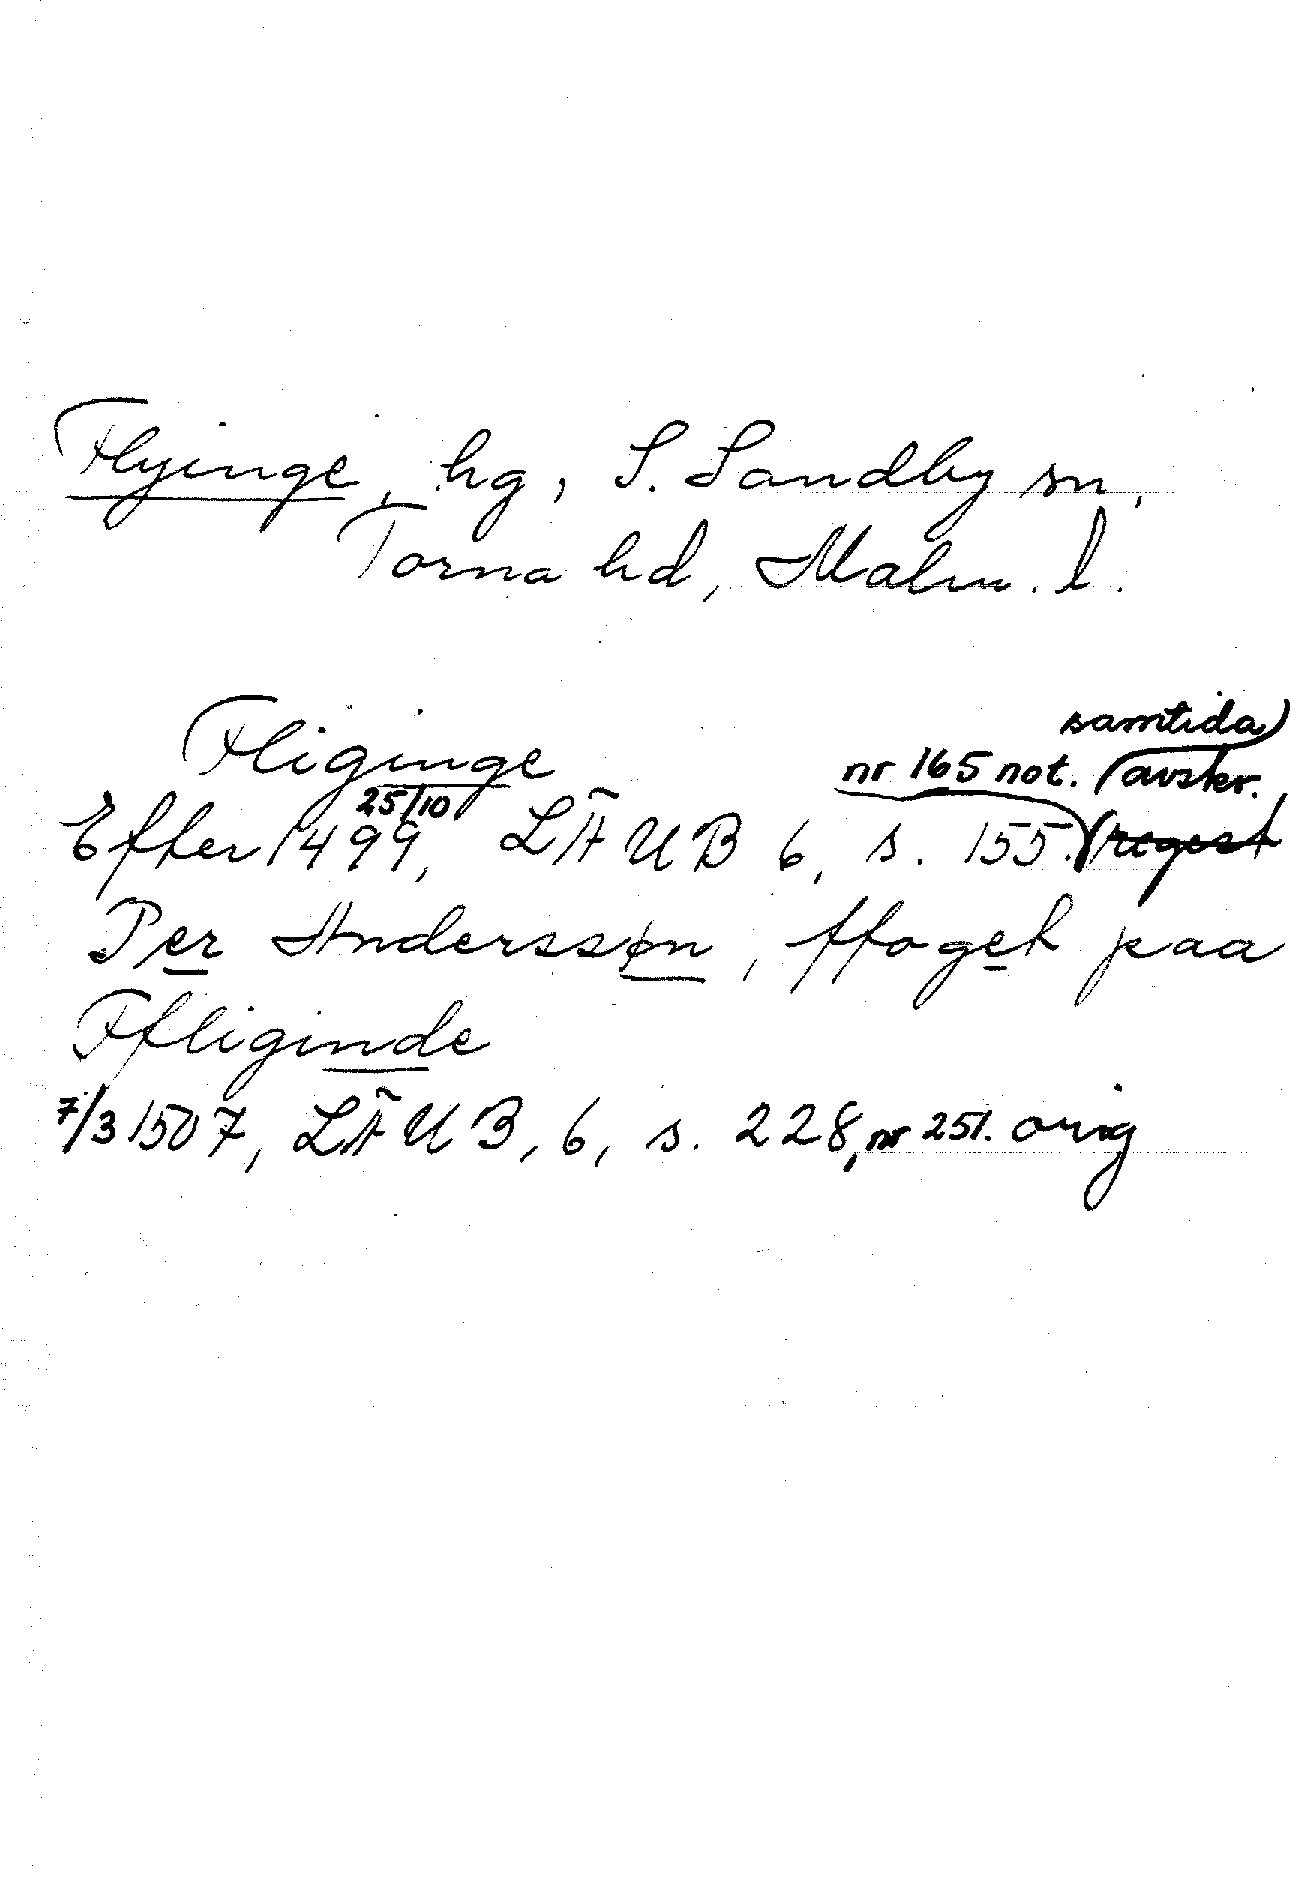 Flyinge, hg, S. Sandby sn,
Torna hd, Malm. l.
Fliginge
samtida)
nr 165 not. (avskr.
25/10
Efter 1499, LÄUB 6, s. 155. (regest
Per Anderssøn, ffoget paa
Ffliginde
7/3 1507, LÄUB, 6, s. 228, nr 251. orig